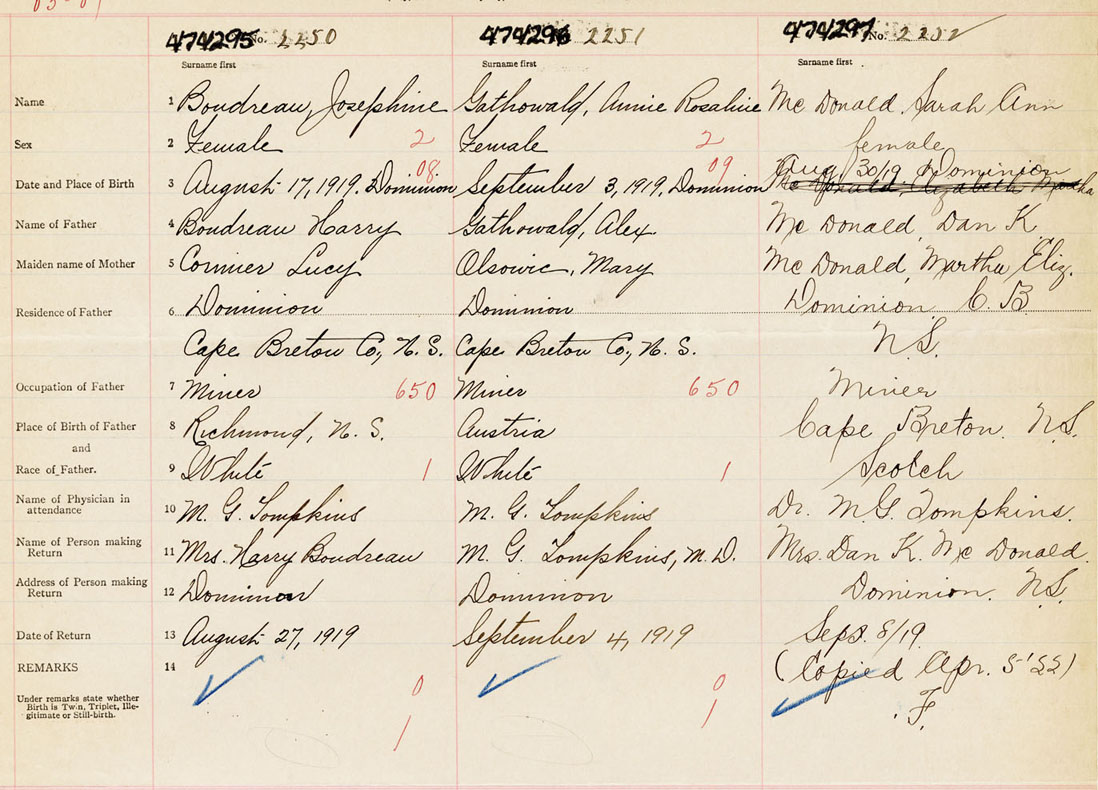 474295 No. 2250 474296 2251 474297 No. 2252
Surname first Surname first Surname first
Name 1 Boudreau, Josephine Gathowald, Annie Rosaline Mc Donald, Sarah Ann
Sex 2 Female 2 Female 2 female
08 09 Aug 30/19 Dominion
Date and Place of Birth 3 August 17, 1919. Dominion September 3, 1919, Dominion Mc Donald, Elizabeth Martha
Name of Father 4 Boudreau Harry Gathowald, Alex. Mc Donald, Dan K.
Maiden name of Mother 5 Cormier Lucy Olsowic, Mary Mc Donald, Martha Eliz.
Residence of Father 6 Dominion Dominion Dominion, C. B.
Cape Breton Co., N. S. Cape Breton Co., N. S. N.S.
Occupation of Father 7 Miner 650 Miner 650 Miner
Place of Birth of Father 8 Richmond, N. S. Austria Cape Breton. N.S.
and
Race of Father. 9 White 1 White 1 Scotch
Name of Physician in
attendance 10 M. G. Tompkins M. G. Tompkins Dr. M.G. Tompkins.
Name of Person making
Return 11 Mrs. Harry Boudreau M. G. Tompkins, M. D. Mrs. Dan K. Mc Donald.
Address of Person making
Return 12 Dominion Dominion Dominion. N.S.
Date of Return 13 August 27, 1919 September 4, 1919 Sept. 8/19
REMARKS 14 (Copied Apr. 5-'22)
Under remarks state whether 0 0
Birth is Twin, Triplet, Ille-
gitimate or Still-birth. 1 1 . F.